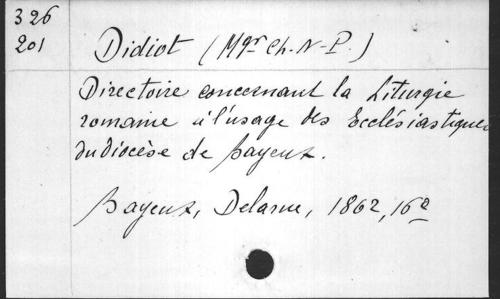 326
201
Didiot (Mgr Ch.-N-P.)
Directoire concernant la Liturgie
romaine à l'usage des Ecclésiastiques
du diocèse de Bayeux.
Bayeux, Delarue, 1862, 16º